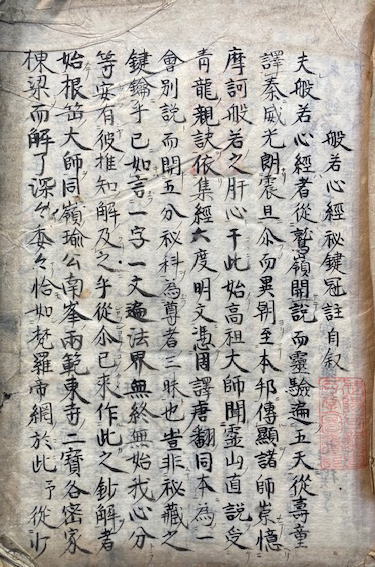 般若心經祕鍵冠註自叙
夫般若心經者從鷲嶺開說而靈驗遍五天從壽童
譯秦威光朗震旦尒而異朝至本邦傳顯諸師崇憶
摩訶般若之肝心于此始高祖大師聞靈山直說受
青龍親訣依集經六度明文憑周譯唐翻同本為一
會別說而開五分祕科為尊者三昧也豈非祕藏之
鍵鑰乎已如言一字一文遍法界無終無始我心分
等安有彼推知解及之乎從尒已來作此之鈔解者
始根大師同嶺瑜公南峯雨範東寺二寶各密家
棟梁而解了深々委々恰如梵羅帝網於此予從沙